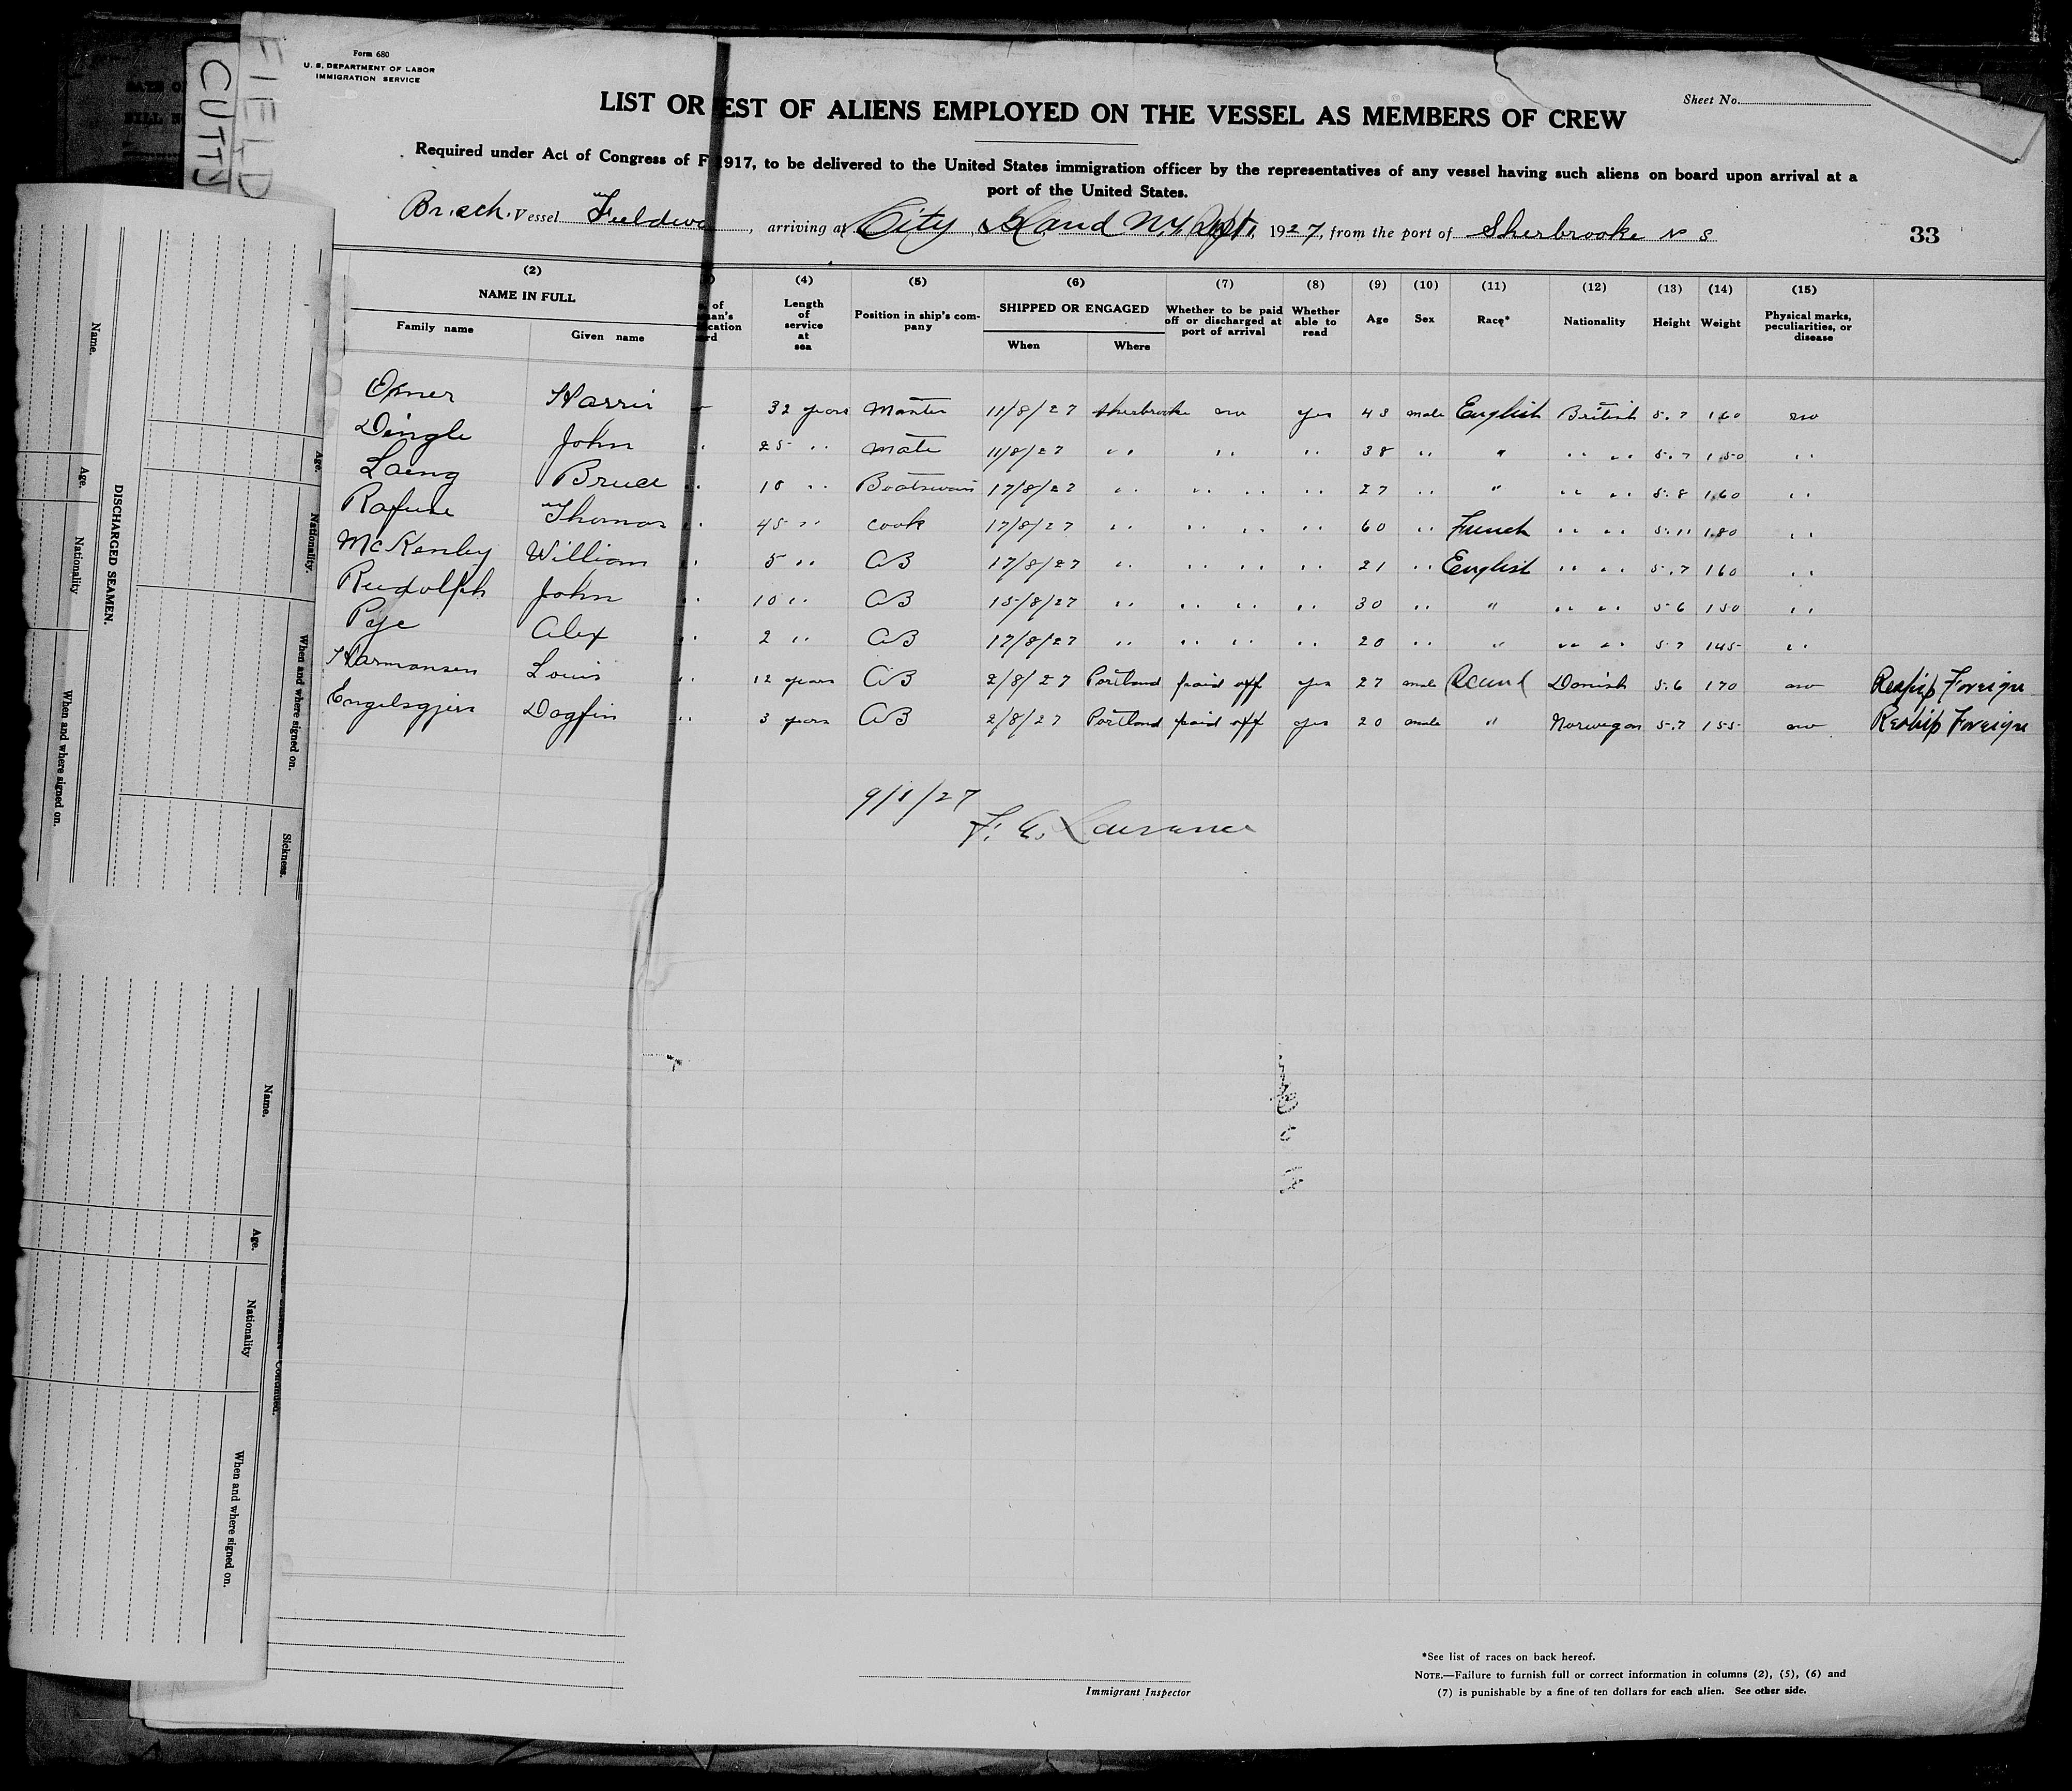 FIELD
CUTTY
Form 680
U. S. DEPARTMENT OF LABOR
IMMIGRATION SERVICE
Sheet No.
LIST OR EST OF ALIENS EMPLOYED ON THE VESSEL AS MEMBERS OF CREW
Required under Act of Congress of F 1917, to be delivered to the United States immigration officer by the representatives of any vessel having such aliens on board upon arrival at a
port of the United States.
Br. sch. Vessel Fieldwo , arriving at City Island N.Y. Sept 1, 1927, from the port of Sherbrooke N S
33
(2) (4) (5) (6) (7) (8) (9) (10) (11) (12) (13) (14) (15)
NAME IN FULL
Family name Given name
Length of service at sea
Position in ship's company
SHIPPED OR ENGAGED
When Where
Whether to be paid off or discharged at port of arrival
Whether able to read
Age Sex Race* Nationality Height Weight
Physical marks, peculiarities, or disease
Harris 32 years Master 11/8/27 Sherbrooke no yes 43 male English British 5.7 160 no
Dingle John " 25 " Mate 11/8/27 " " " 38 " " " " 5.7 150 "
Laing Bruce " 10 " Boatswain 17/8/27 " " " " 27 " " " " 5.8 160 "
Rafuse Thomas " 45 " cook 17/8/27 " " " " 60 " French " " 5.11 180 "
McKenley William " 5 " AB 17/8/27 " " " " 21 " English " " 5.7 160 "
Rudolph John " 10 " AB 15/8/27 " " " " 30 " " " " 5 6 150 "
Pye Alex " 2 " AB 17/8/27 " " " " 20 " " " " 5.7 145 "
Harmansen Louis " 12 years AB 2/8/27 Portland paid off yes 27 male Scand Danish 5.6 170 no Reship Foreign
Engelsgjers Dagfin " 3 years AB 2/8/27 Portland paid off yes 20 male " Norwegan 5.7 155 no Reship Foreign
9/1/27
Immigrant Inspector
*See list of races on back hereof.
NOTE.—Failure to furnish full or correct information in columns (2), (5), (6) and
(7) is punishable by a fine of ten dollars for each alien. See other side.
DISCHARGED SEAMEN.
Name. Age. Nationality When and where signed on.
Age. Nationality. When and where signed on. Sickness.
Name. Age. Nationality When and where signed on.